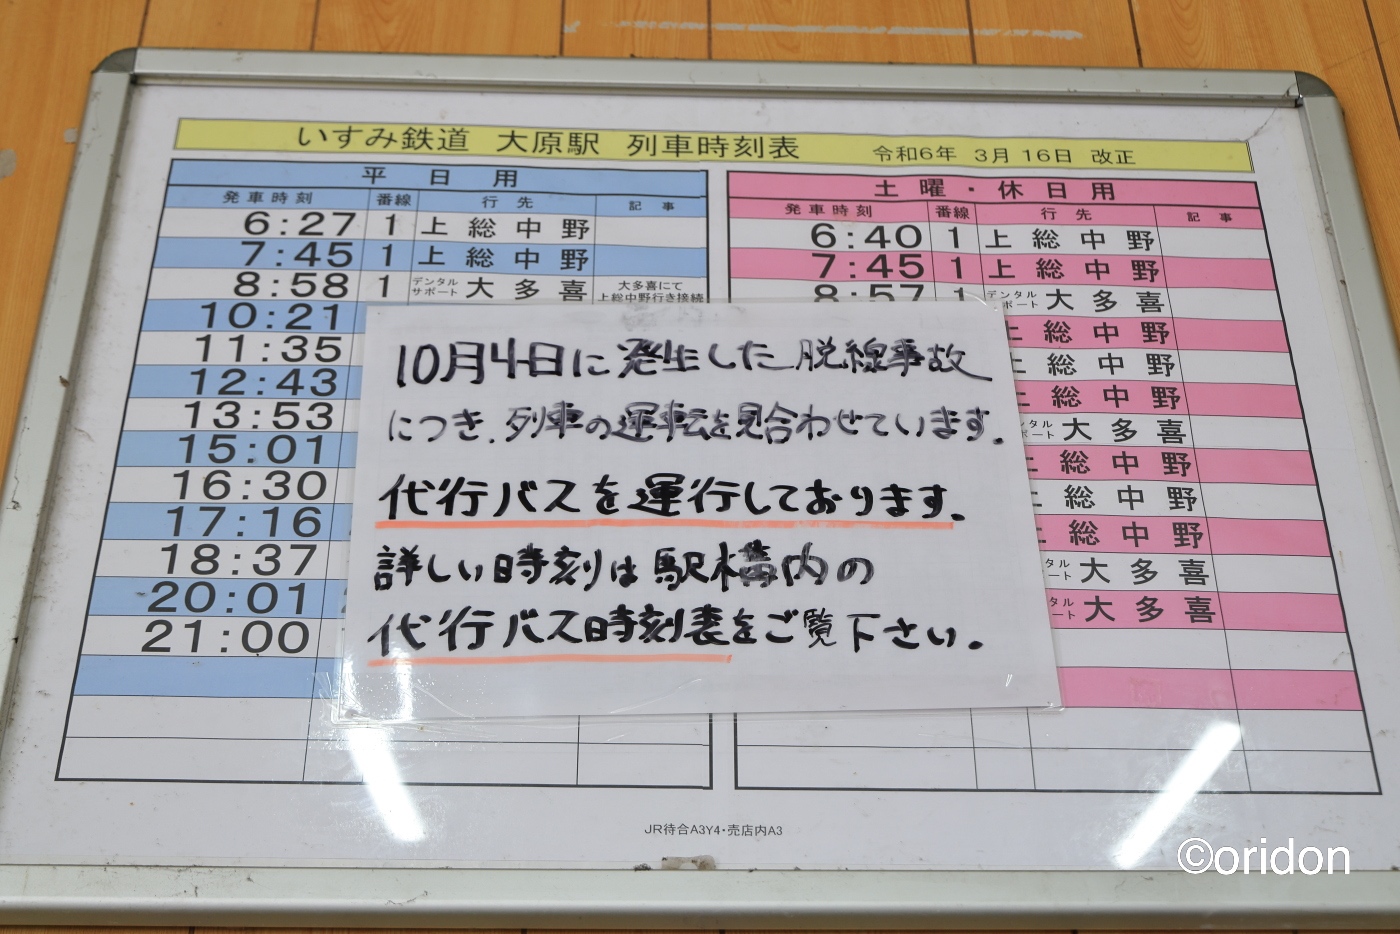 いすみ鉄道 大原駅 列車時刻表 令和6年 3月 16日 改正
平日用
発車時刻 番線 行先 記事
6:27 1 上総中野
7:45 1 上総中野
8:58 1 デンタルサポート 大多喜 大多喜にて上総中野行き接続
10:21
11:35
12:43
13:53
15:01
16:30
17:16
18:37
20:01
21:00
土曜・休日用
発車時刻 番線 行先 記事
6:40 1 上総中野
7:45 1 上総中野
8:57 1 デンタルサポート 大多喜
上総中野
総中野
上総中野
ンタル ポート 大多喜
上総中野
上総中野
上総中野
タル ート 大多喜
タル ート 大多喜
10月4日に発生した脱線事故
につき、列車の運転を見合わせています。
代行バスを運行しております。
詳しい時刻は駅構内の
代行バス時刻表をご覧下さい。
JR待合A3Y4・売店内A3
©oridon